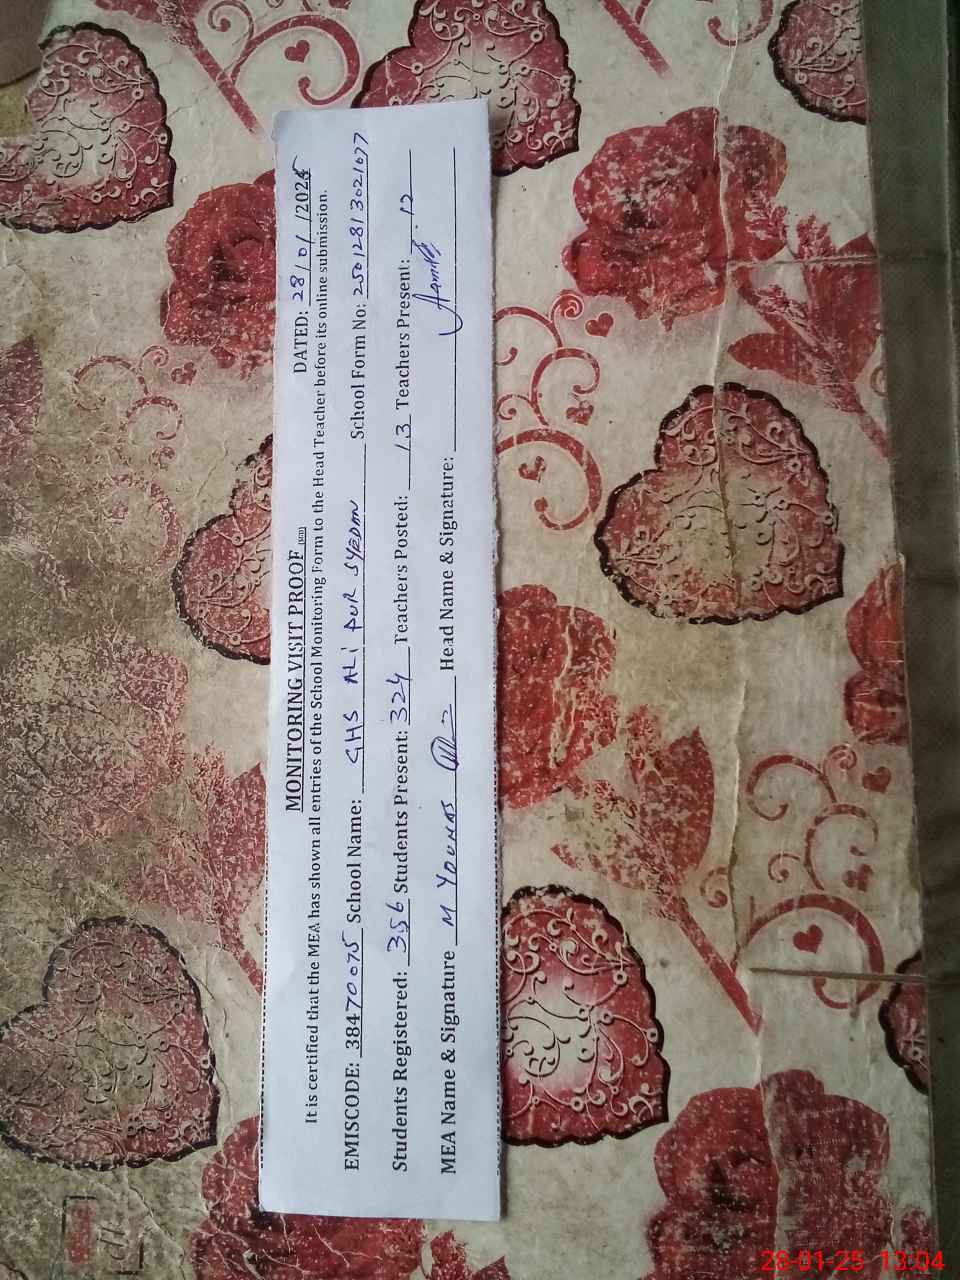 MONITORING VISIT PROOF (SED)
DATED: 28/01/2025
It is certified that the MEA has shown all entries of the School Monitoring Form to the Head Teacher before its online submission.
EMISCODE: 38470075 School Name: GHS ALI PUR SYEDAN School Form No: 25012813021077
Students Registered: 356 Students Present: 324 Teachers Posted: 13 Teachers Present: 12
MEA Name & Signature M YOUNAS Head Name & Signature:
28-01-25 13:04